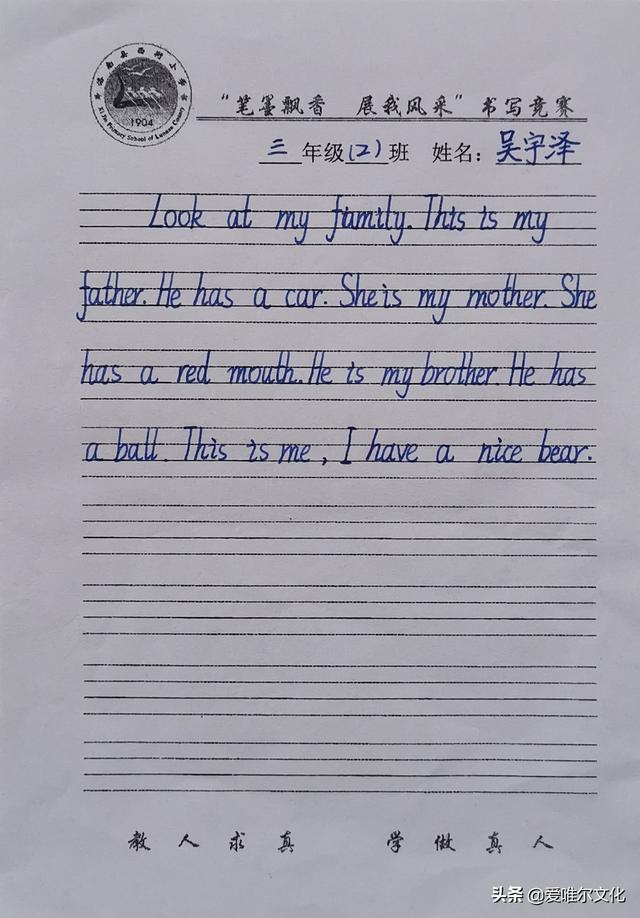 洛南县西街小学
1904
Xi Jie Primary School of Luonan County
“笔墨飘香 展我风采”书写竞赛
三年级(2)班 姓名：吴宇泽
Look at my family. This is my
father. He has a car. She is my mother. She
has a red mouth. He is my brother. He has
a ball. This is me, I have a nice bear.
教人求真 学做真人
头条 @爱唯尔文化